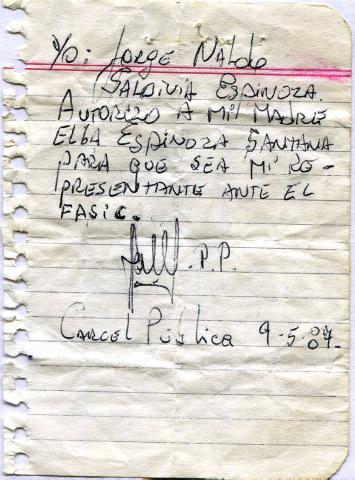 Yo: Jorge Naldo
Saldivia Espinoza.
Autorizo a mi Madre
Elba Espinoza Santana
para que sea mi re-
presentante ante el
FASIC.
.P.P.
Carcel Pública 9-5-87.-